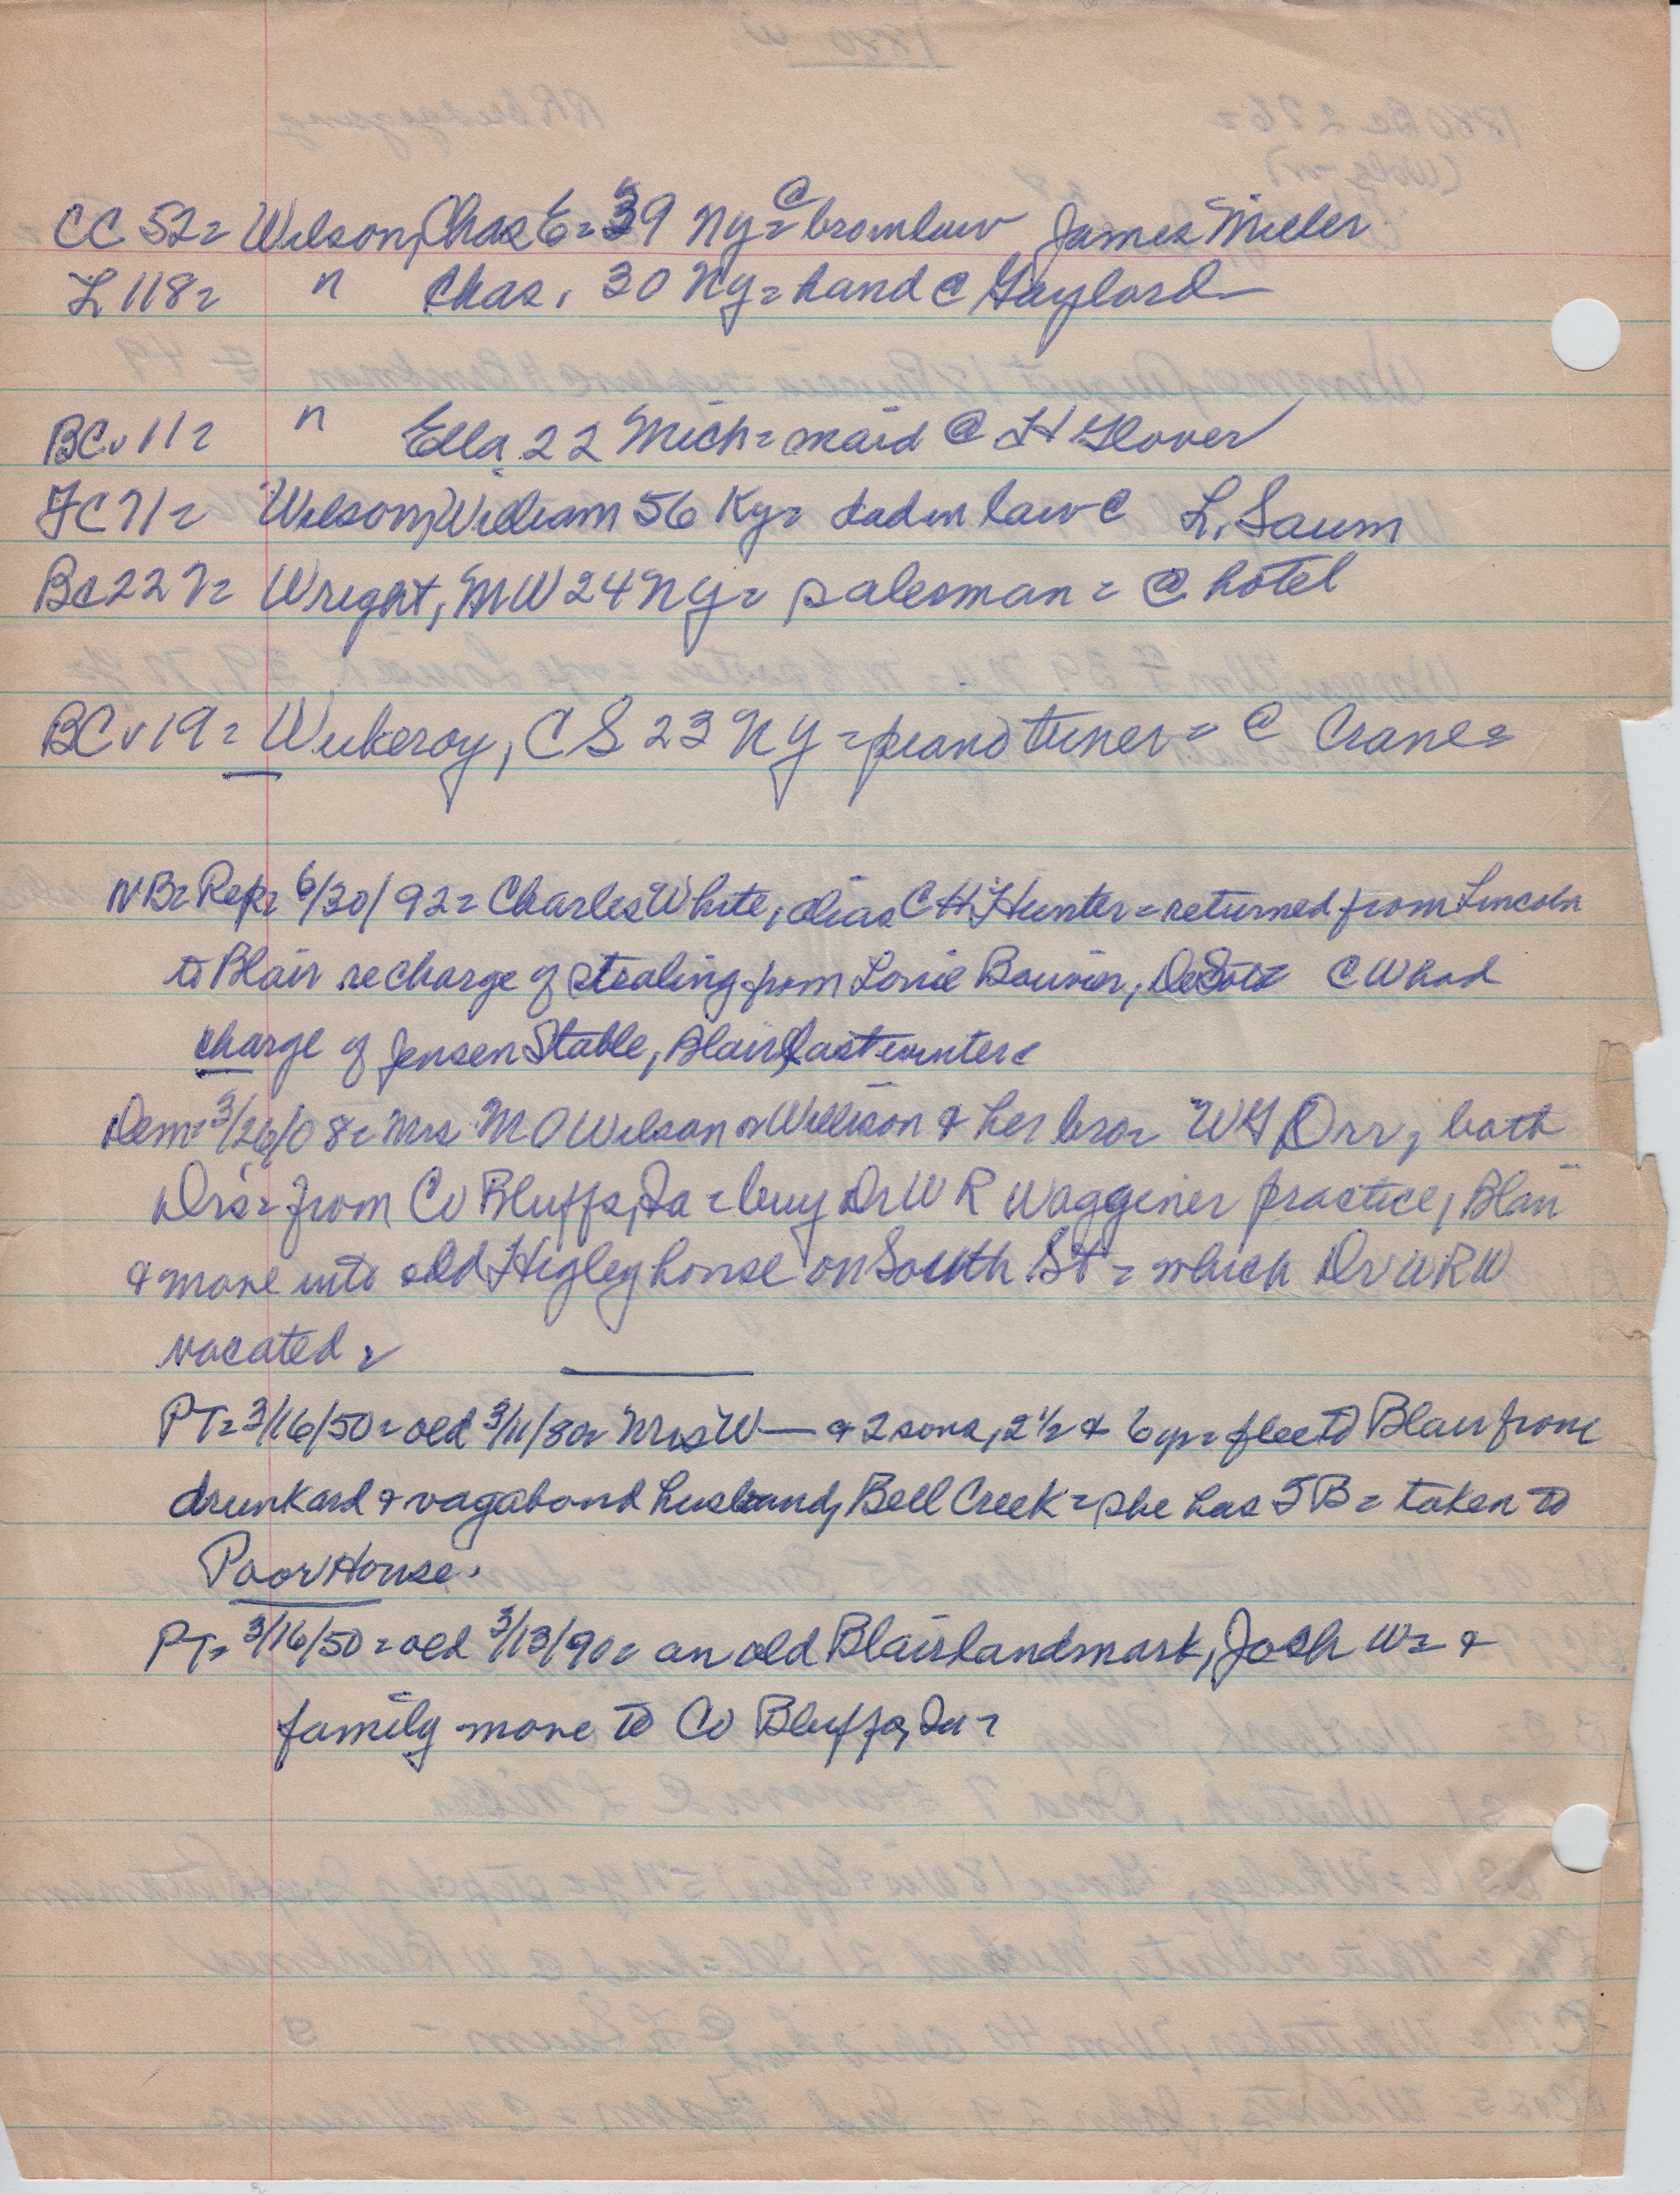 CC 52= Wilson, Chas E= 39 NY= @ broinlaw James Miller
L 118= " Chas, 30 NY= hand @ Gaylord
BCv 11= " Ella 22 Mich= maid @ H Glover
FC 71= Wilson, William 56 Ky= dadinlaw @ L. Saum
Bc 227= Wright, MW 24 NY= salesman = @ hotel
BCv 19= Wukeroy, CS 23 NY = piano tuner = @ Crane=
NB= Rep= 6/30/92= Charles White, alias C H Hunter = returned from Lincoln
to Blair re charge of stealing from Louie Bouvier, DeSoto CW had
charge of Jensen Stable, Blair, last winter=
Dem= 3/26/08= Mrs M O Wilson or Willison & her bro= WG Orr, both
Drs= from Co Bluffs, Ia = buy Dr W R Waggener practice, Blair
& move into old Higley house on South St = which Dr WRW
vacated =
PT= 3/16/50= old 3/11/80= Mrs W— & 2 sons, 2 1/2 & 6 yr= flee to Blair from
drunkard & vagabond husband, Bell Creek = she has TB = taken to
Poor House.
PT= 3/16/50= old 3/13/90= an old Blair landmark, Josh W= &
family move to Co Bluffs, Ia =